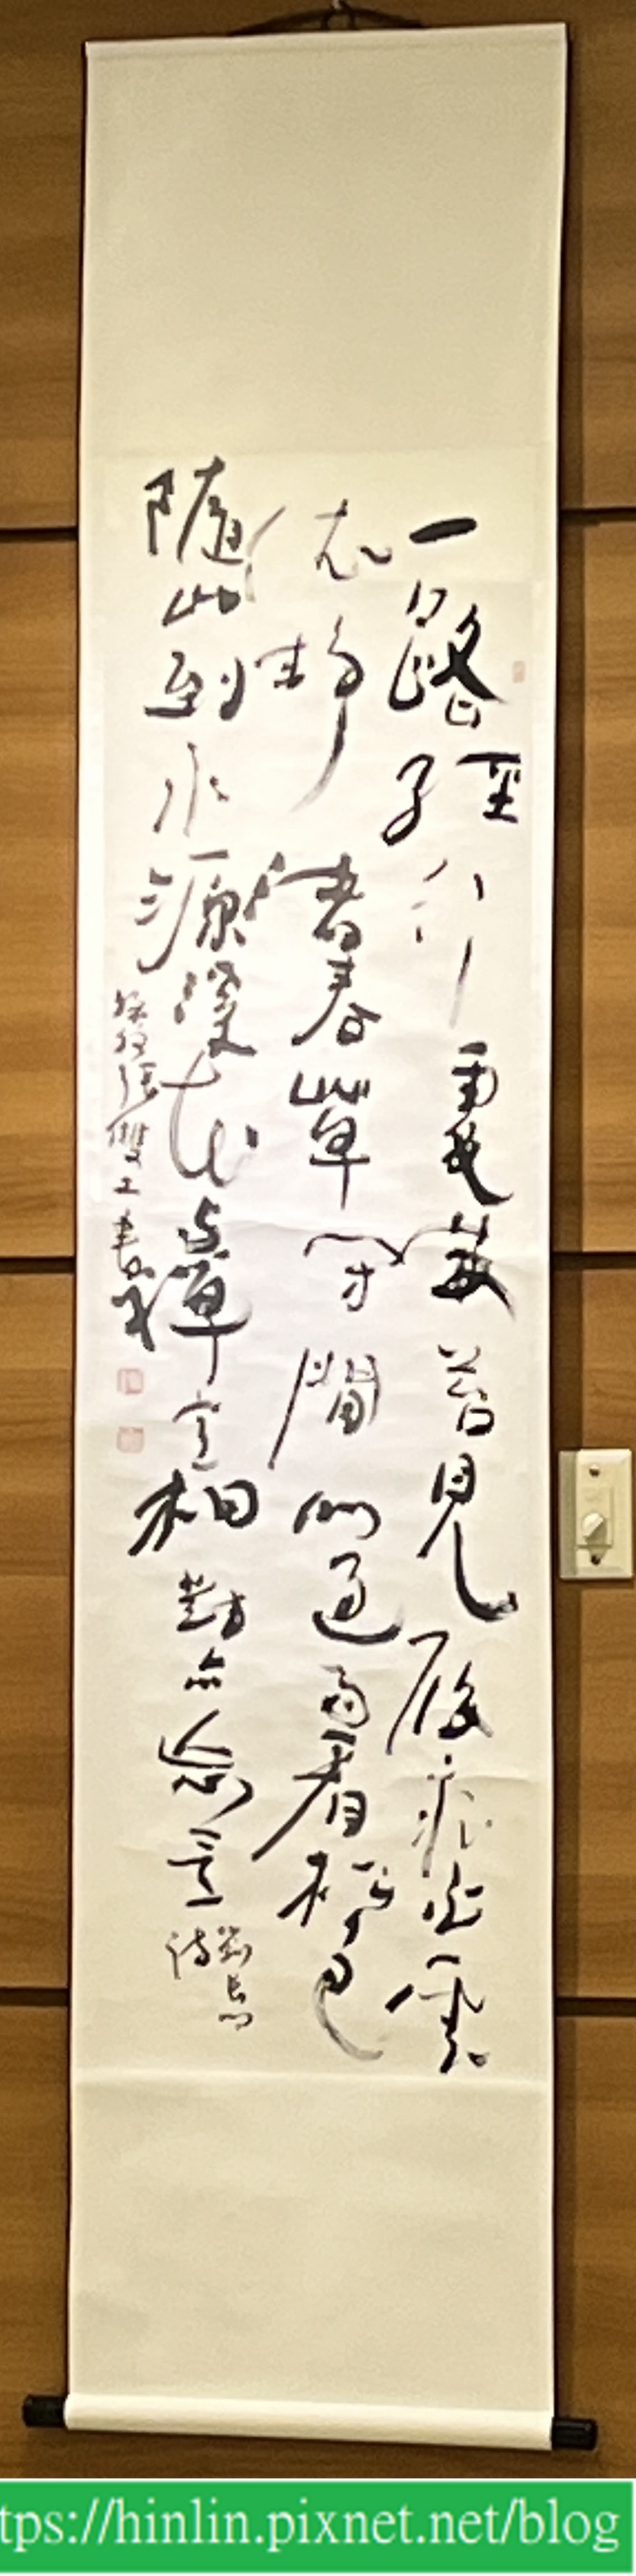 一路經行處莓苔見履痕白雲
依靜渚春草閉閒門過雨看松色
隨山到水源溪花与禪意相對亦忘言
劉長卿
詩
張雙工書
tps://hinlin.pixnet.net/blog